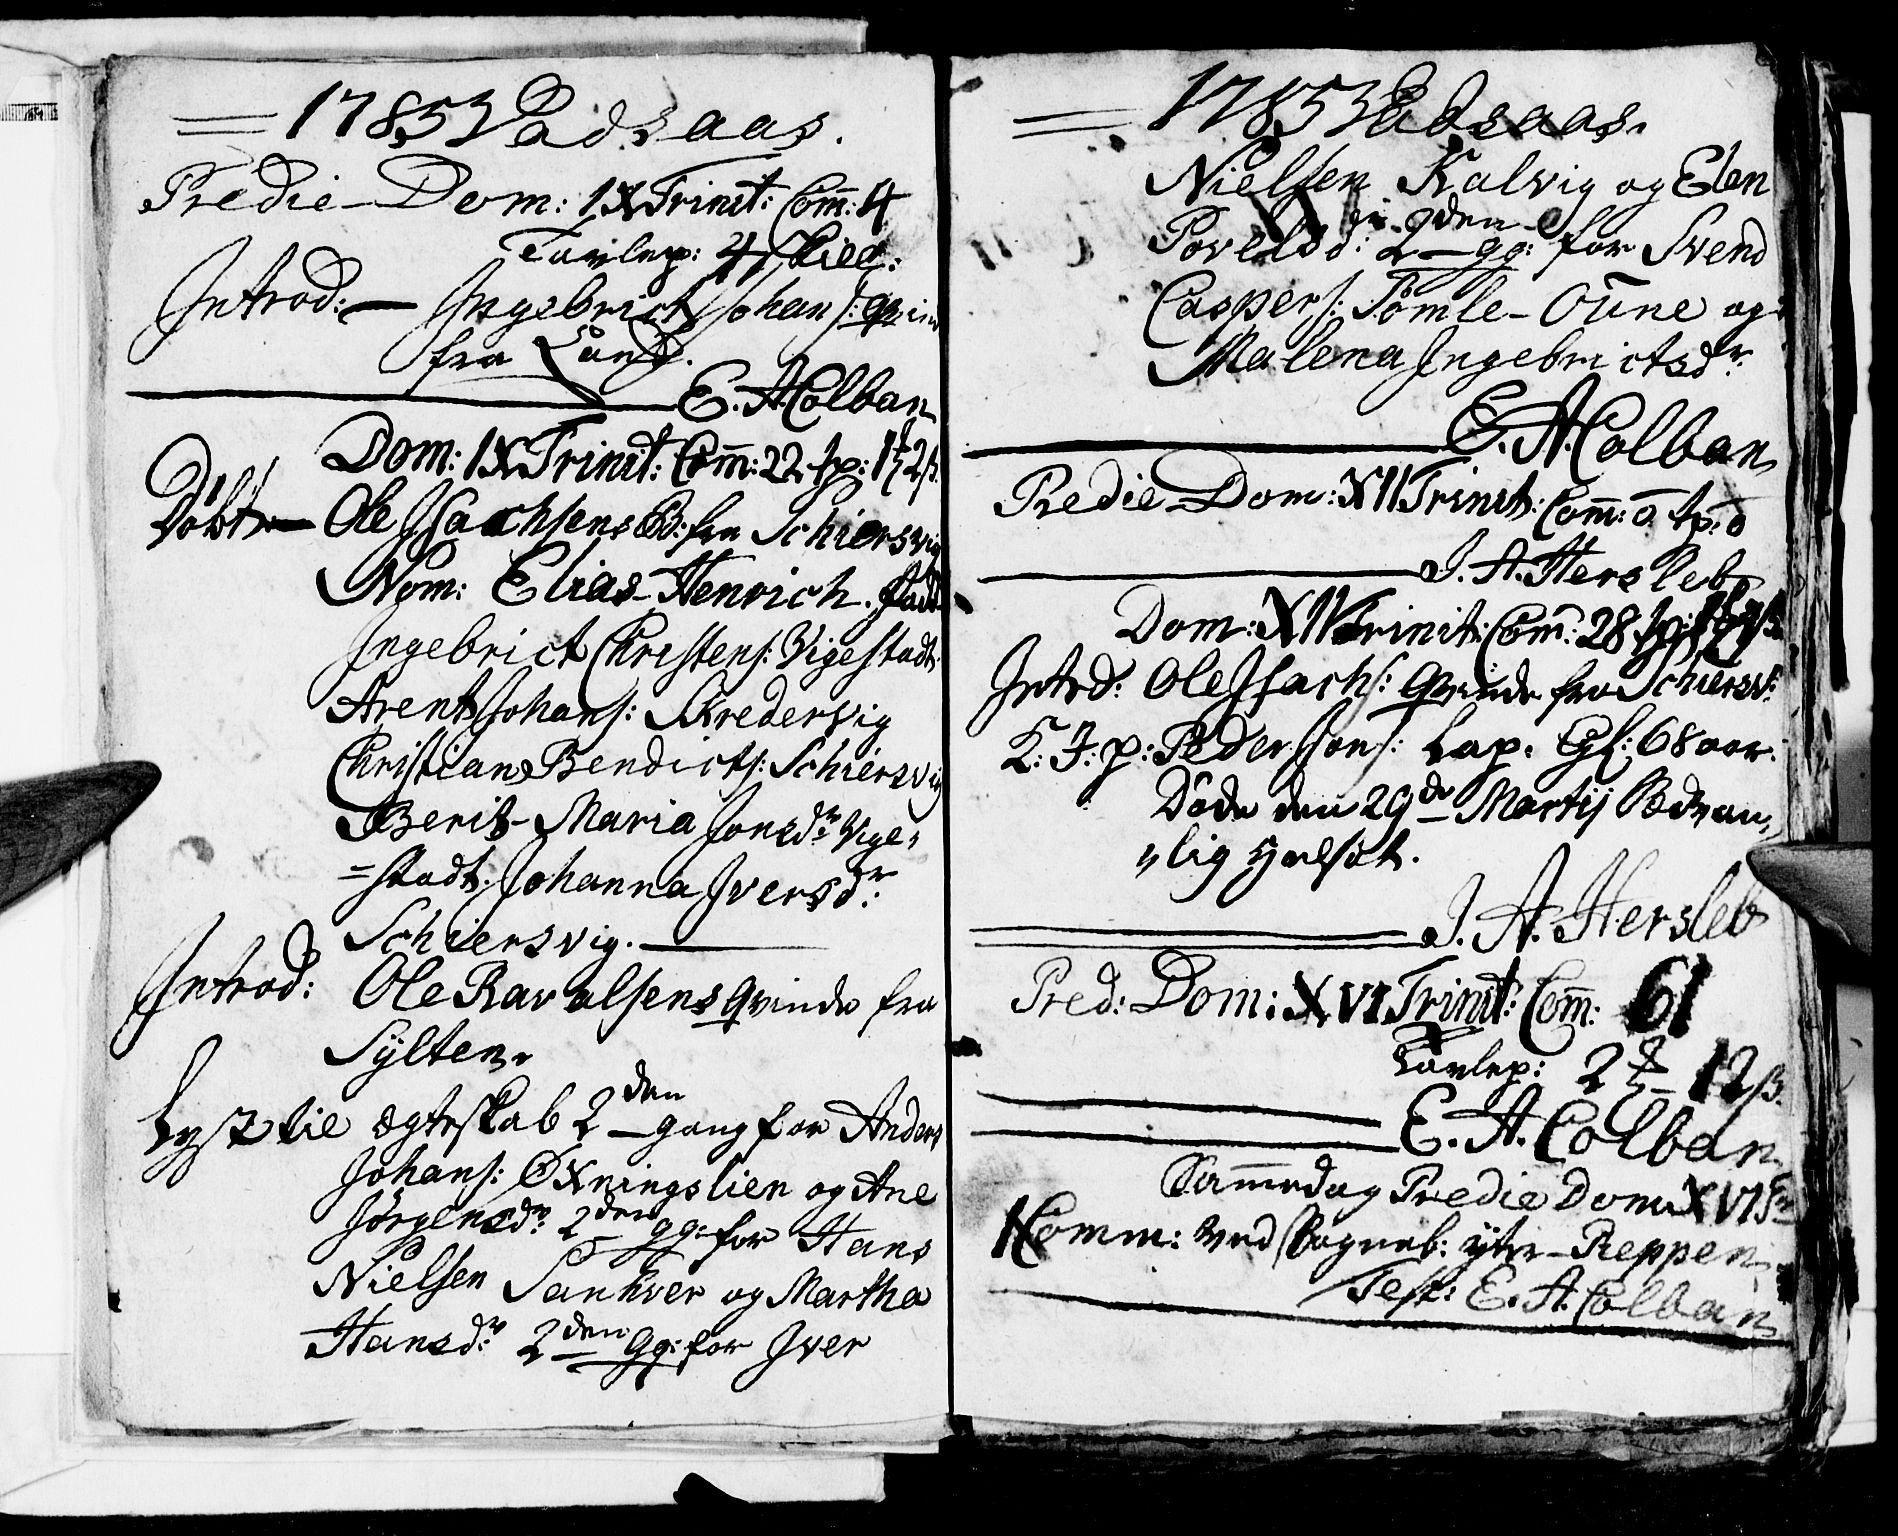 1785 Vadsaas.
Predie Dom: IX Trinit: Com̄: 4
Tavlep: 4 skill:
Introd: Ingebrict Johans: qvind
fra Land.
E. A. Colban
Dom: IX Trinit: Com̄: 22 tp:
Döbt Ole Isachsens Bd: fra Schiersvig
Nom: Elias Henrich. fadd
Ingebrict Christens: Vigestadt
Arent Johans: Skredervig
Christian Bendicts: Schiersvig
Berit Maria Jonsdr: Vige„
=stadt. Johanna Iversdr:
Schiersvig.
Introd: Ole Ravalsens qvinde fra
Sylten.
Lyst tie ægteskab 2den gang for Anders
Johans: Øxningslien og Ane
Jørgensdr: 2den gg: for Hans
Nielsen Sanhver og Martha
Hansdr: 2den gg: for Iver
1785 Vadsaas.
Nielsen Kalvig og Elen
Povelsd: 2den gg: for Svend
Caspers: Tömle-Oüne og
Malena Ingebrictsdr:
E. A. Colban
Predie Dom: XII Trinit: Com̄: o tp: o
J. A. Hersleb
Dom: Trinit: Com̄: 28 tp:
Introd: Ole Isachs: qvinde fra Schiersv:
K: J: p: Peder Jons: Lap. Gl: 68 aar:
Döde den 29de Martij Sædvan„
„lig Helsot.
J. A. Hersleb
Pred: Dom: XVI Trinit: Com̄: 61
Tavlep: 2 12 s.
E. A. Colban
Sam̄edag Predie Dom: XVI
Komm: ved Sogneb: ytre Reppen
Test: E. A. Colban